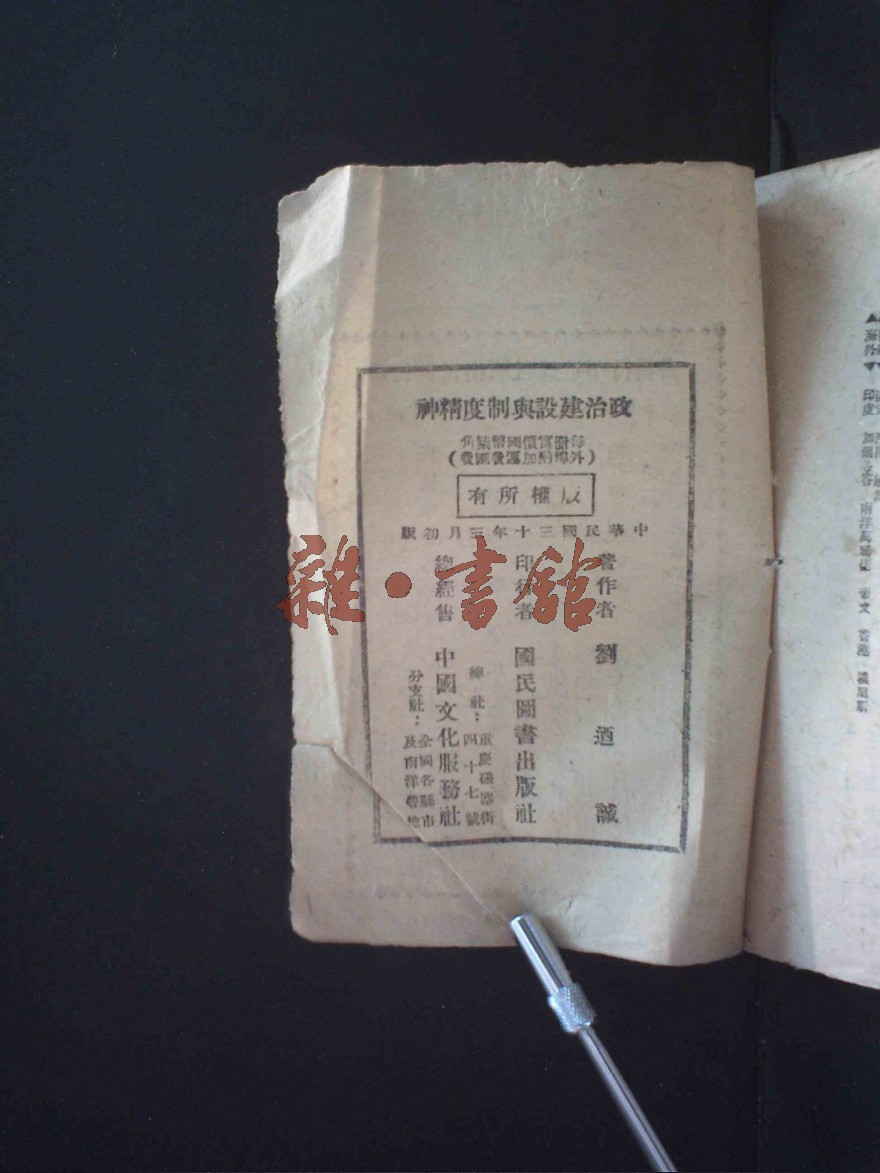 政治建設與制度精神
每冊實價國幣柒角
(外埠酌加運費匯費)
版權所有
中華民國三十年三月初版
著作者 劉迺誠
印行者 國民圖書出版社
總經售 中國文化服務社
總社：重慶磁器街四十七號
分支社：全國各縣市及南洋各地
雜·書館